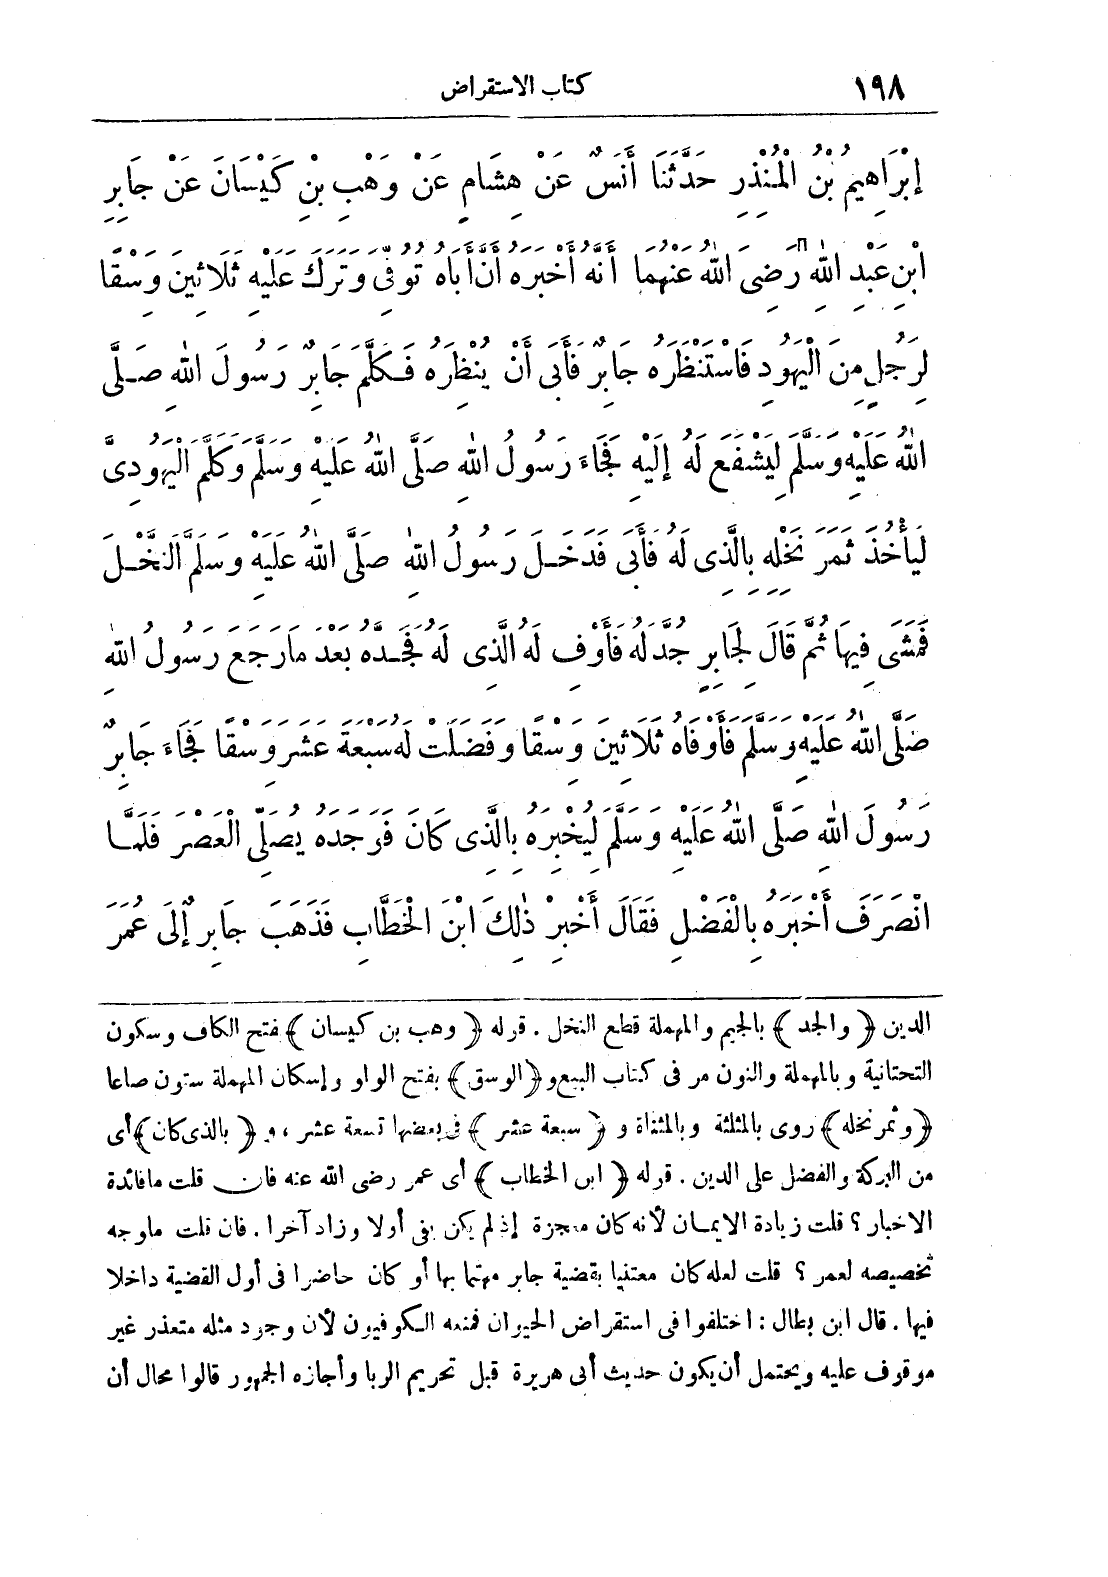 ١٩٨ كتاب الاستقراض
إِبْرَاهِيمُ بْنُ الْمُنْذِرِ حَدَّثَنَا أَنَسٌ عَنْ هِشَامٍ عَنْ وَهْبِ بْنِ كَيْسَانَ عَنْ جَابِرِ
ابْنِ عَبْدِ اللهِ رَضِىَ اللهُ عَنْهُمَا أَنَّهُ أَخْبَرَهُ أَنَّ أَبَاهُ تُوُفِّىَ وَتَرَكَ عَلَيْهِ ثَلَاثِينَ وَسْقًا
لِرَجُلٍ مِنَ الْيَهُودِ فَاسْتَنْظَرَهُ جَابِرٌ فَأَبَى أَنْ يُنْظِرَهُ فَكَلَّمَ جَابِرٌ رَسُولَ اللهِ صَلَّى
اللهُ عَلَيْهِ وَسَلَّمَ لِيَشْفَعَ لَهُ إِلَيْهِ فَجَاءَ رَسُولُ اللهِ صَلَّى اللهُ عَلَيْهِ وَسَلَّمَ وَكَلَّمَ الْيَهُودِىَّ
لِيَأْخُذَ ثَمَرَ نَخْلِهِ بِالَّذِى لَهُ فَأَبَى فَدَخَلَ رَسُولُ اللهِ صَلَّى اللهُ عَلَيْهِ وَسَلَّمَ النَّخْلَ
فَمَشَى فِيهَا ثُمَّ قَالَ لِجَابِرٍ جُدَّ لَهُ فَأَوْفِ لَهُ الَّذِى لَهُ فَجَدَّهُ بَعْدَ مَا رَجَعَ رَسُولُ اللهِ
صَلَّى اللهُ عَلَيْهِ وَسَلَّمَ فَأَوْفَاهُ ثَلَاثِينَ وَسْقًا وَفَضَلَتْ لَهُ سَبْعَةَ عَشَرَ وَسْقًا فَجَاءَ جَابِرٌ
رَسُولَ اللهِ صَلَّى اللهُ عَلَيْهِ وَسَلَّمَ لِيُخْبِرَهُ بِالَّذِى كَانَ فَوَجَدَهُ يُصَلِّى الْعَصْرَ فَلَمَّا
انْصَرَفَ أَخْبَرَهُ بِالْفَضْلِ فَقَالَ أَخْبِرْ ذٰلِكَ ابْنَ الْخَطَّابِ فَذَهَبَ جَابِرٌ إِلَى عُمَرَ
الدين ﴿والجد﴾ بالجيم والمهملة قطع النخل . قوله ﴿وهب بن كيسان﴾ فتح الكاف وسكون
التحتانية وبالمهملة والنون مر فى كتاب البيع و﴿الوسق﴾ بفتح الواو وإسكان المهملة ستون صاعا
﴿وثمر نخله﴾ روى بالمثلثة وبالمثناة و ﴿سبعة عشر﴾ فى بعضها تسعة عشر ، و ﴿بالذى كان﴾ أى
من البركة والفضل على الدين . قوله ﴿ابن الخطاب﴾ أى عمر رضى الله عنه فان قلت ما فائدة
الاخبار ؟ قلت زيادة الايمان لأنه كان معجزة إذ لم يكن يفى أولا وزاد آخرا . فان قلت ماوجه
تخصيصه لعمر ؟ قلت لعله كان معتنيا بقضية جابر مهتما بها أو كان حاضرا فى أول القضية داخلا
فيها . قال ابن بطال : اختلفوا فى استقراض الحيوان فمنعه الكوفيون لأن وجود مثله متعذر غير
موقوف عليه ويحتمل أن يكون حديث أبى هريرة قبل تحريم الربا وأجازه الجمهور قالوا محال أن